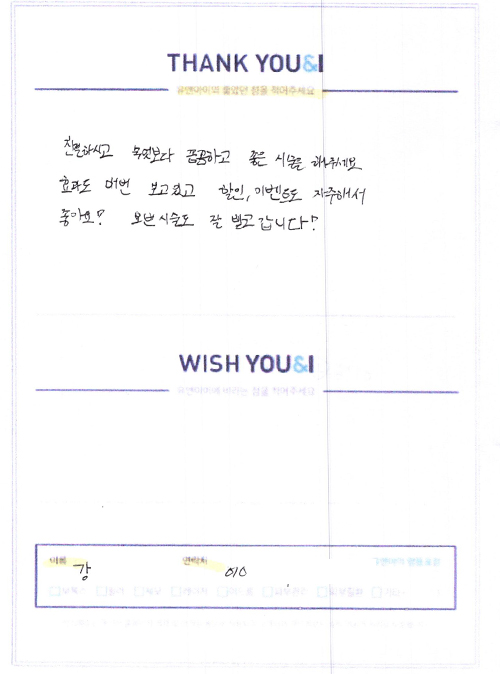 THANK YOU&I
유앤아이의 좋았던 점을 적어주세요
친절하시고 무엇보다 꼼꼼하고 좋은 시술을 해주세요
효과도 매번 보고있고 할인, 이벤트도 자주해서
좋아요! 오늘 시술도 잘 받고 갑니다!
WISH YOU&I
유앤아이에 바라는 점을 적어주세요
이름 강 연락처 010